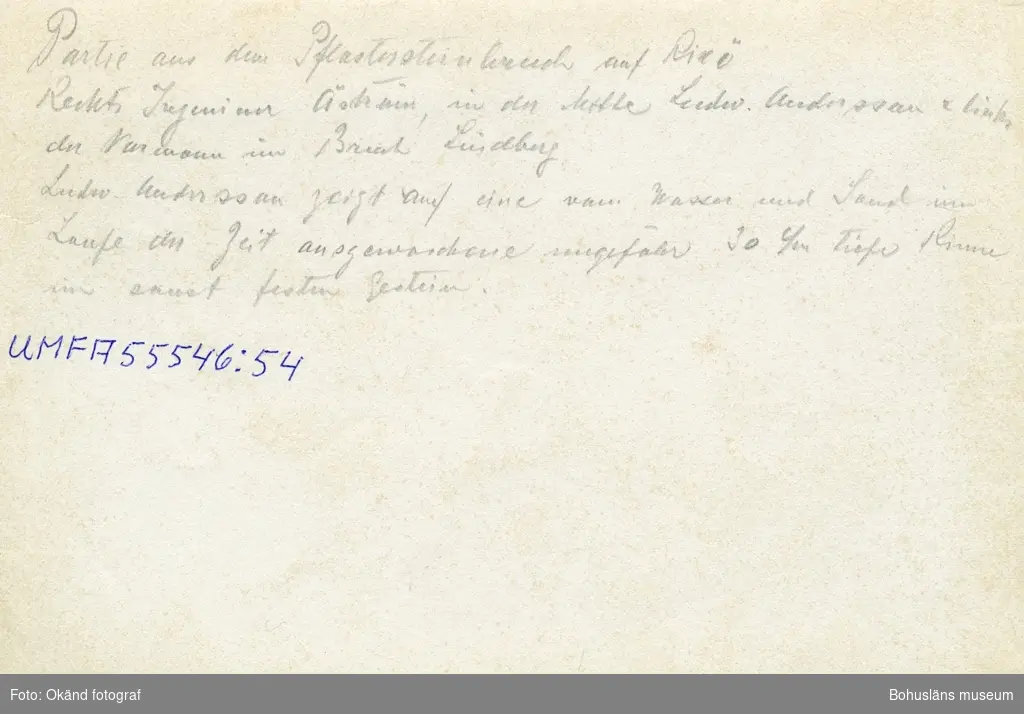 Partie aus dem Pflastersteinbruch auf Rixö
Rechts Ingenieur Åström, in der Mitte Ludw. Andersson & links
der Vormann im Bruch Lindberg
Ludw. Andersson zeigt auf eine vom Wasser und Sand im
Laufe der Zeit ausgewaschene ungefähr 30 c/m tiefe Rinne
im sonst festen Gestein.
UMFA55546:54
Foto: Okänd fotograf
Bohusläns museum